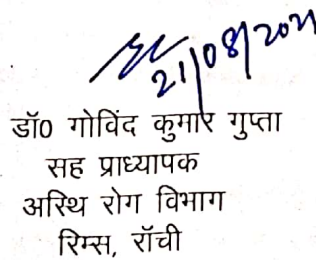 21/08/2021
डॉ0 गोविंद कुमार गुप्ता
सह प्राध्यापक
अस्थि रोग विभाग
रिम्स, राँची